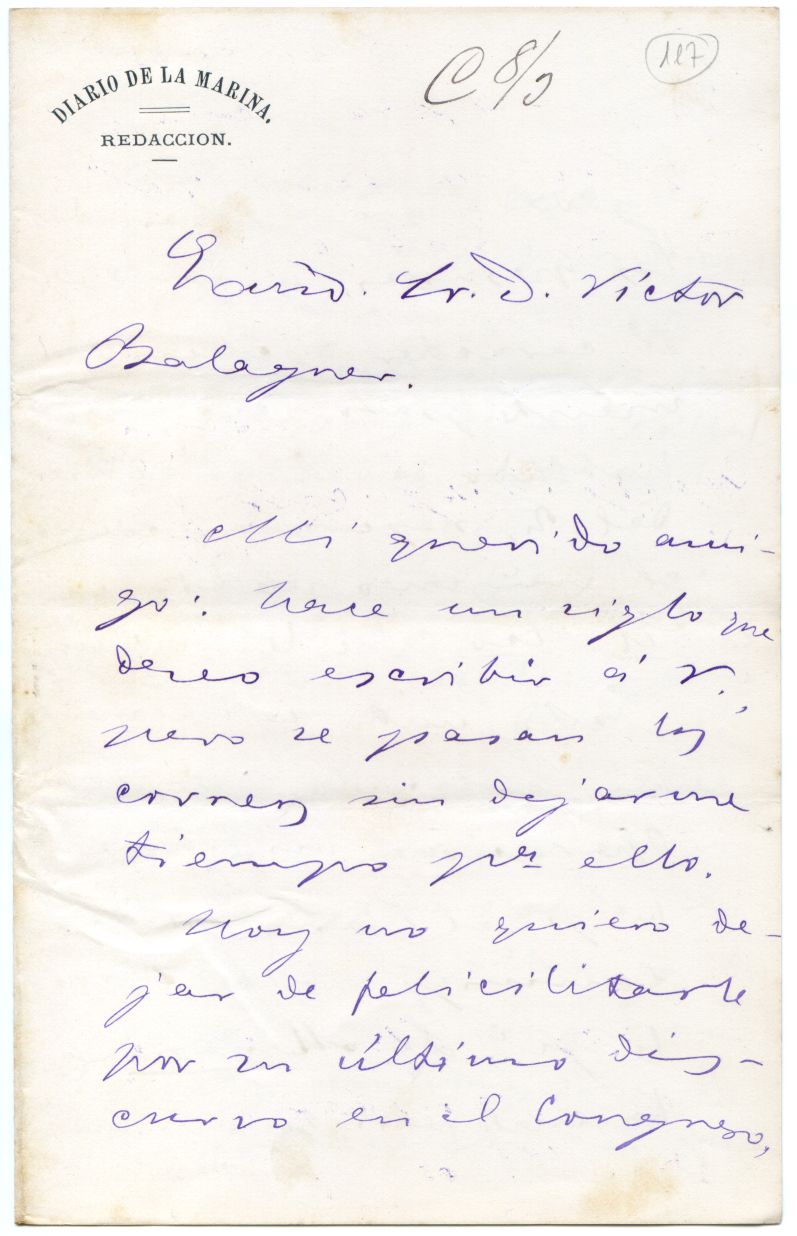 DIARIO DE LA MARINA.
REDACCION.
C 8/5
117
Excmo. Sr. D. Víctor
Balaguer.
Mi querido ami-
go: hace un siglo que
deseo escribir á V.,
pero se pasan los
correos sin dejarme
tiempo pra ello.
Hoy no quiero de-
jar de felicilitarle
por su último dis-
curso en el Congreso,